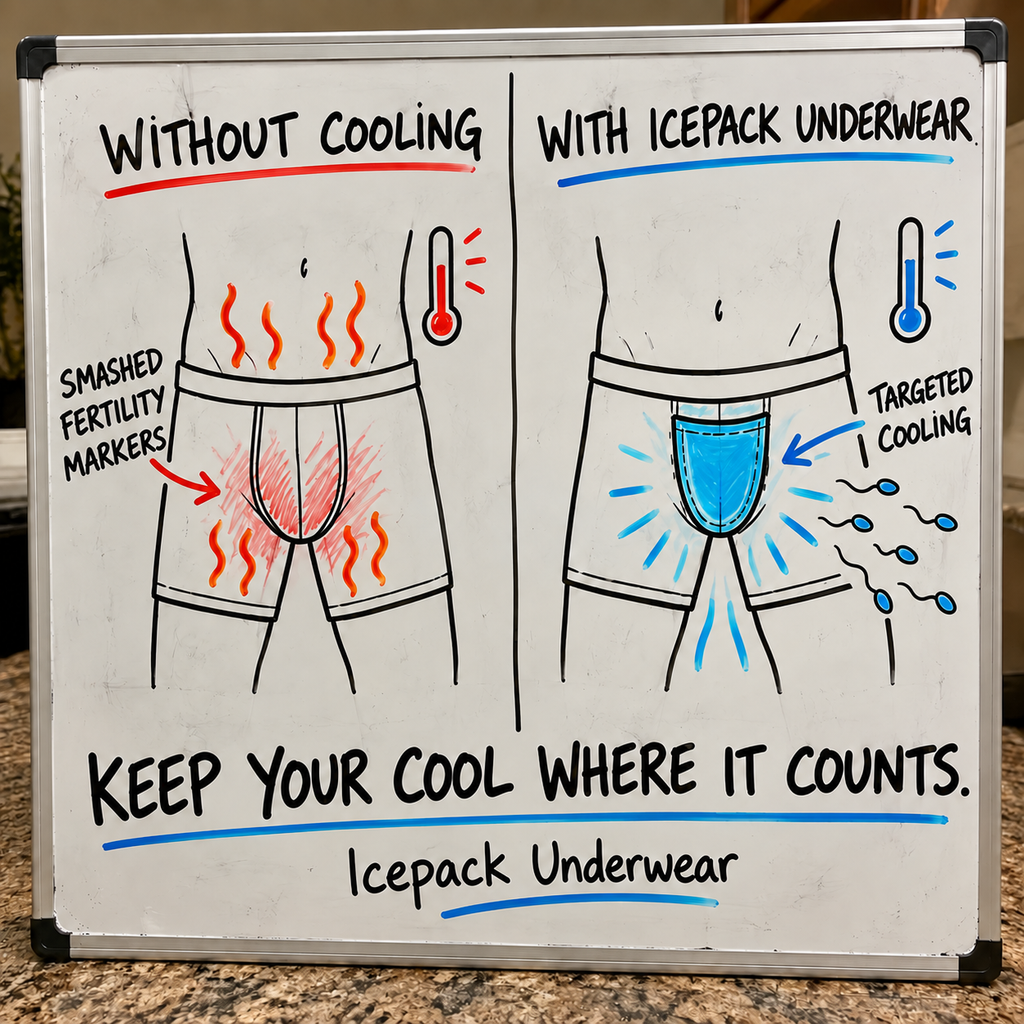 WITHOUT COOLING
SMASHED
FERTILITY
MARKERS
WITH ICEPACK UNDERWEAR
TARGETED
COOLING
KEEP YOUR COOL WHERE IT COUNTS.
Icepack Underwear